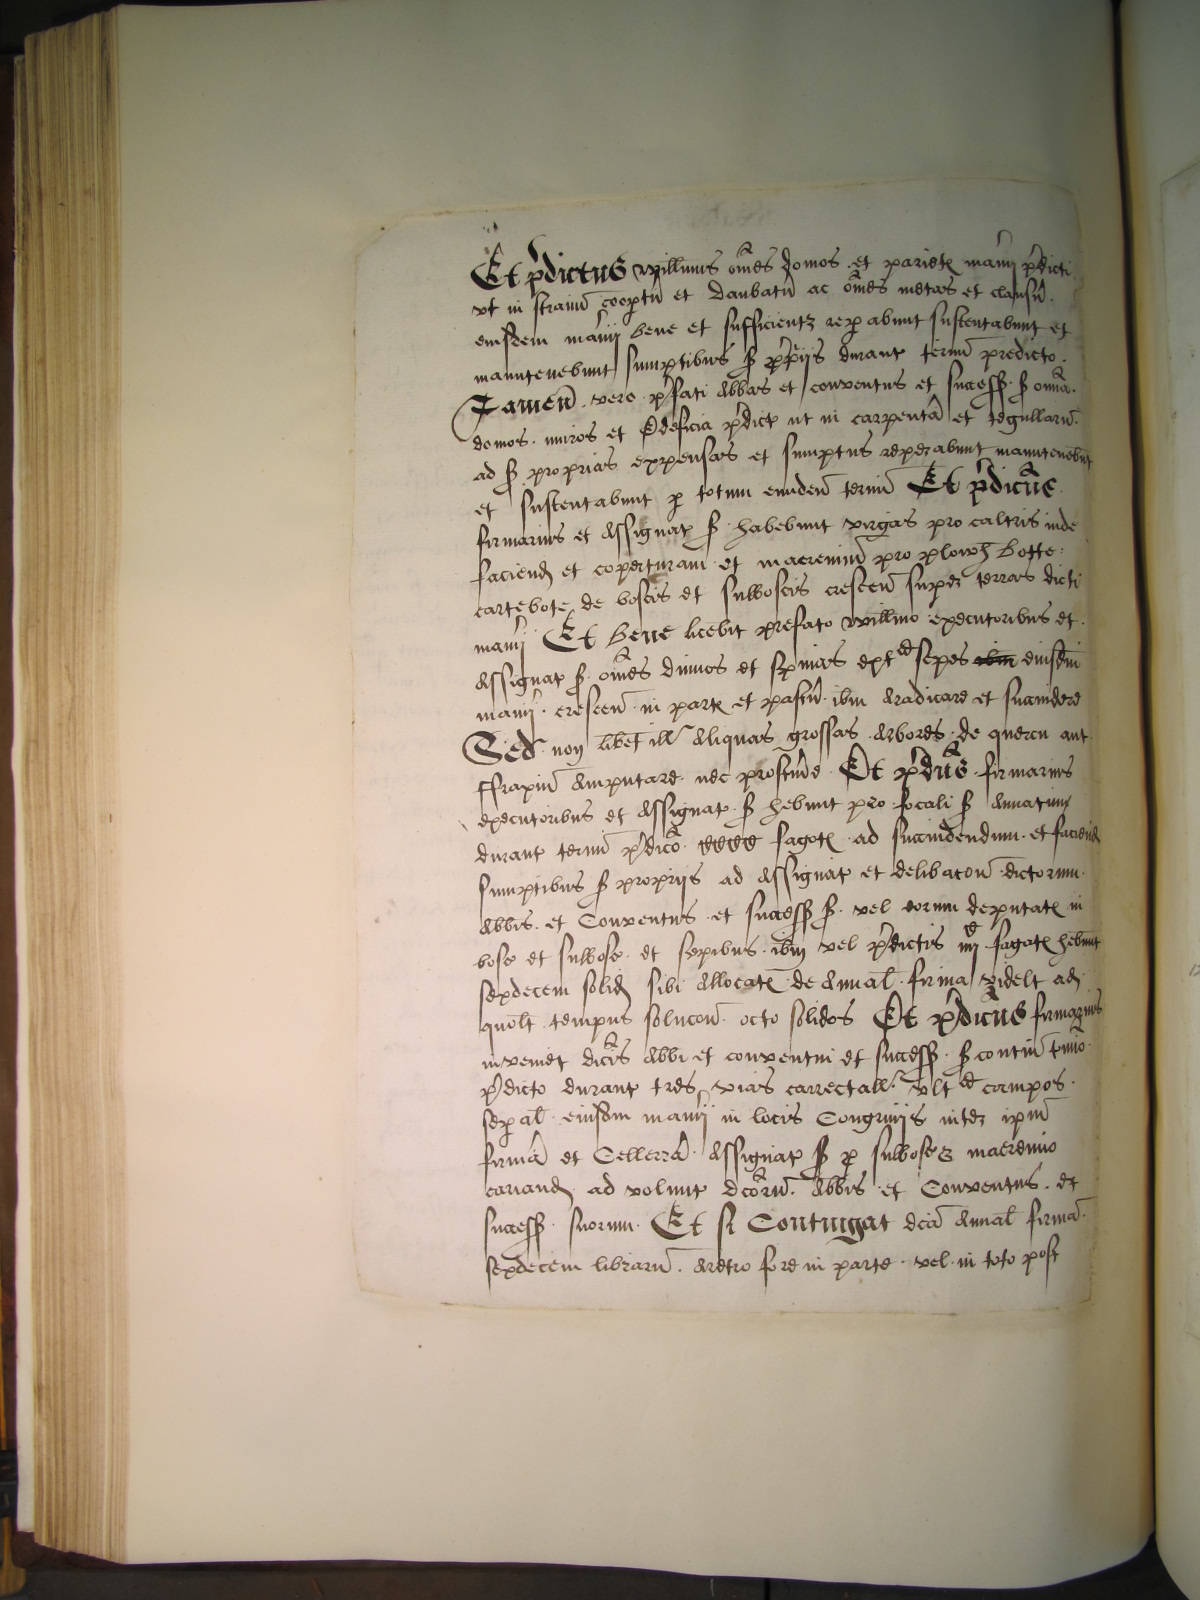 Et p'dictus Willmus om̄es domos et pariet' man'ij p'dicti
vt in stramī coop̄tur̄ et daubatur̄ ac om̄es metas et clausur̄
eiusdem man'ij bene et sufficient' rep̱abunt sustentabunt et
manutenebunt sumptibus s. p̱p̱riis durant' termī predicto.
Tamen. vero p'fati Abbas et conventus et success. s. om̄ia.
domos. muros et Edeficia p'dict' ut in carpentar̄ et tegullarū
ad s. proprias expensas et sumptus reperabunt manutenebūt
et sustentabunt p̱ totum eundem̄ termī Et p'dictus
firmarius et Assignat' s. habebunt virgas pro caltris inde
faciend' et coperturam et maeremium pro plowh bote
cartebote de boscis et subboscis crescen̄ super terras dicti
man'ij Et bene licebit prefato Willmo executoribus et
Assignat' s. om̄es dumos et spinas ext' sepes ib̄m eiusdm̄
man'ij crescen̄ in part' et pastur̄ ib̄m Aradicare et succindere
Sed non libet ill' Aliquas grossas Arbores de quercu aut
ffraxin̄ Amputare nec prost'n'e Et p'd'us firmarius
executoribus et Assignat' s. h'ebunt pro focali s. Annatim
durant' termī p'dic'o CCCC fagot' ad succindendum et faciend'
sumptibus s. propriis ad Assignat' et delibac̄on' dictorum
Abbis et Conventus et success. s. vel eorum deputat' in
bosc' et subbosc' et sepibus ib̄m vel p'dictis iiij C fagot' h'ebunt
sexdecem solid' sibi Allocat' de Annal' firma videl't ad
quol't tempus soluc̄on' octo solidos Et p'dictus firmarius
inveniet dict'is Abbi et conventui et success. s. contin' t'mi'o
p'dicto durant' tres vias carrectall' vlt' campos
sep̱al' eiusdm man'ij in locis Congruijs inter ip̄m
firmar̄ et Cellerar̄ Assignat' s. p̱ subbosc' maeremio
cariand' ad volunt' dc̄orum Abbis et Conventus et
success. suorum. Et si Contingat dc̄am Annal' firmam̄
sexdecem librarū Aretro fore in parte vel in toto post